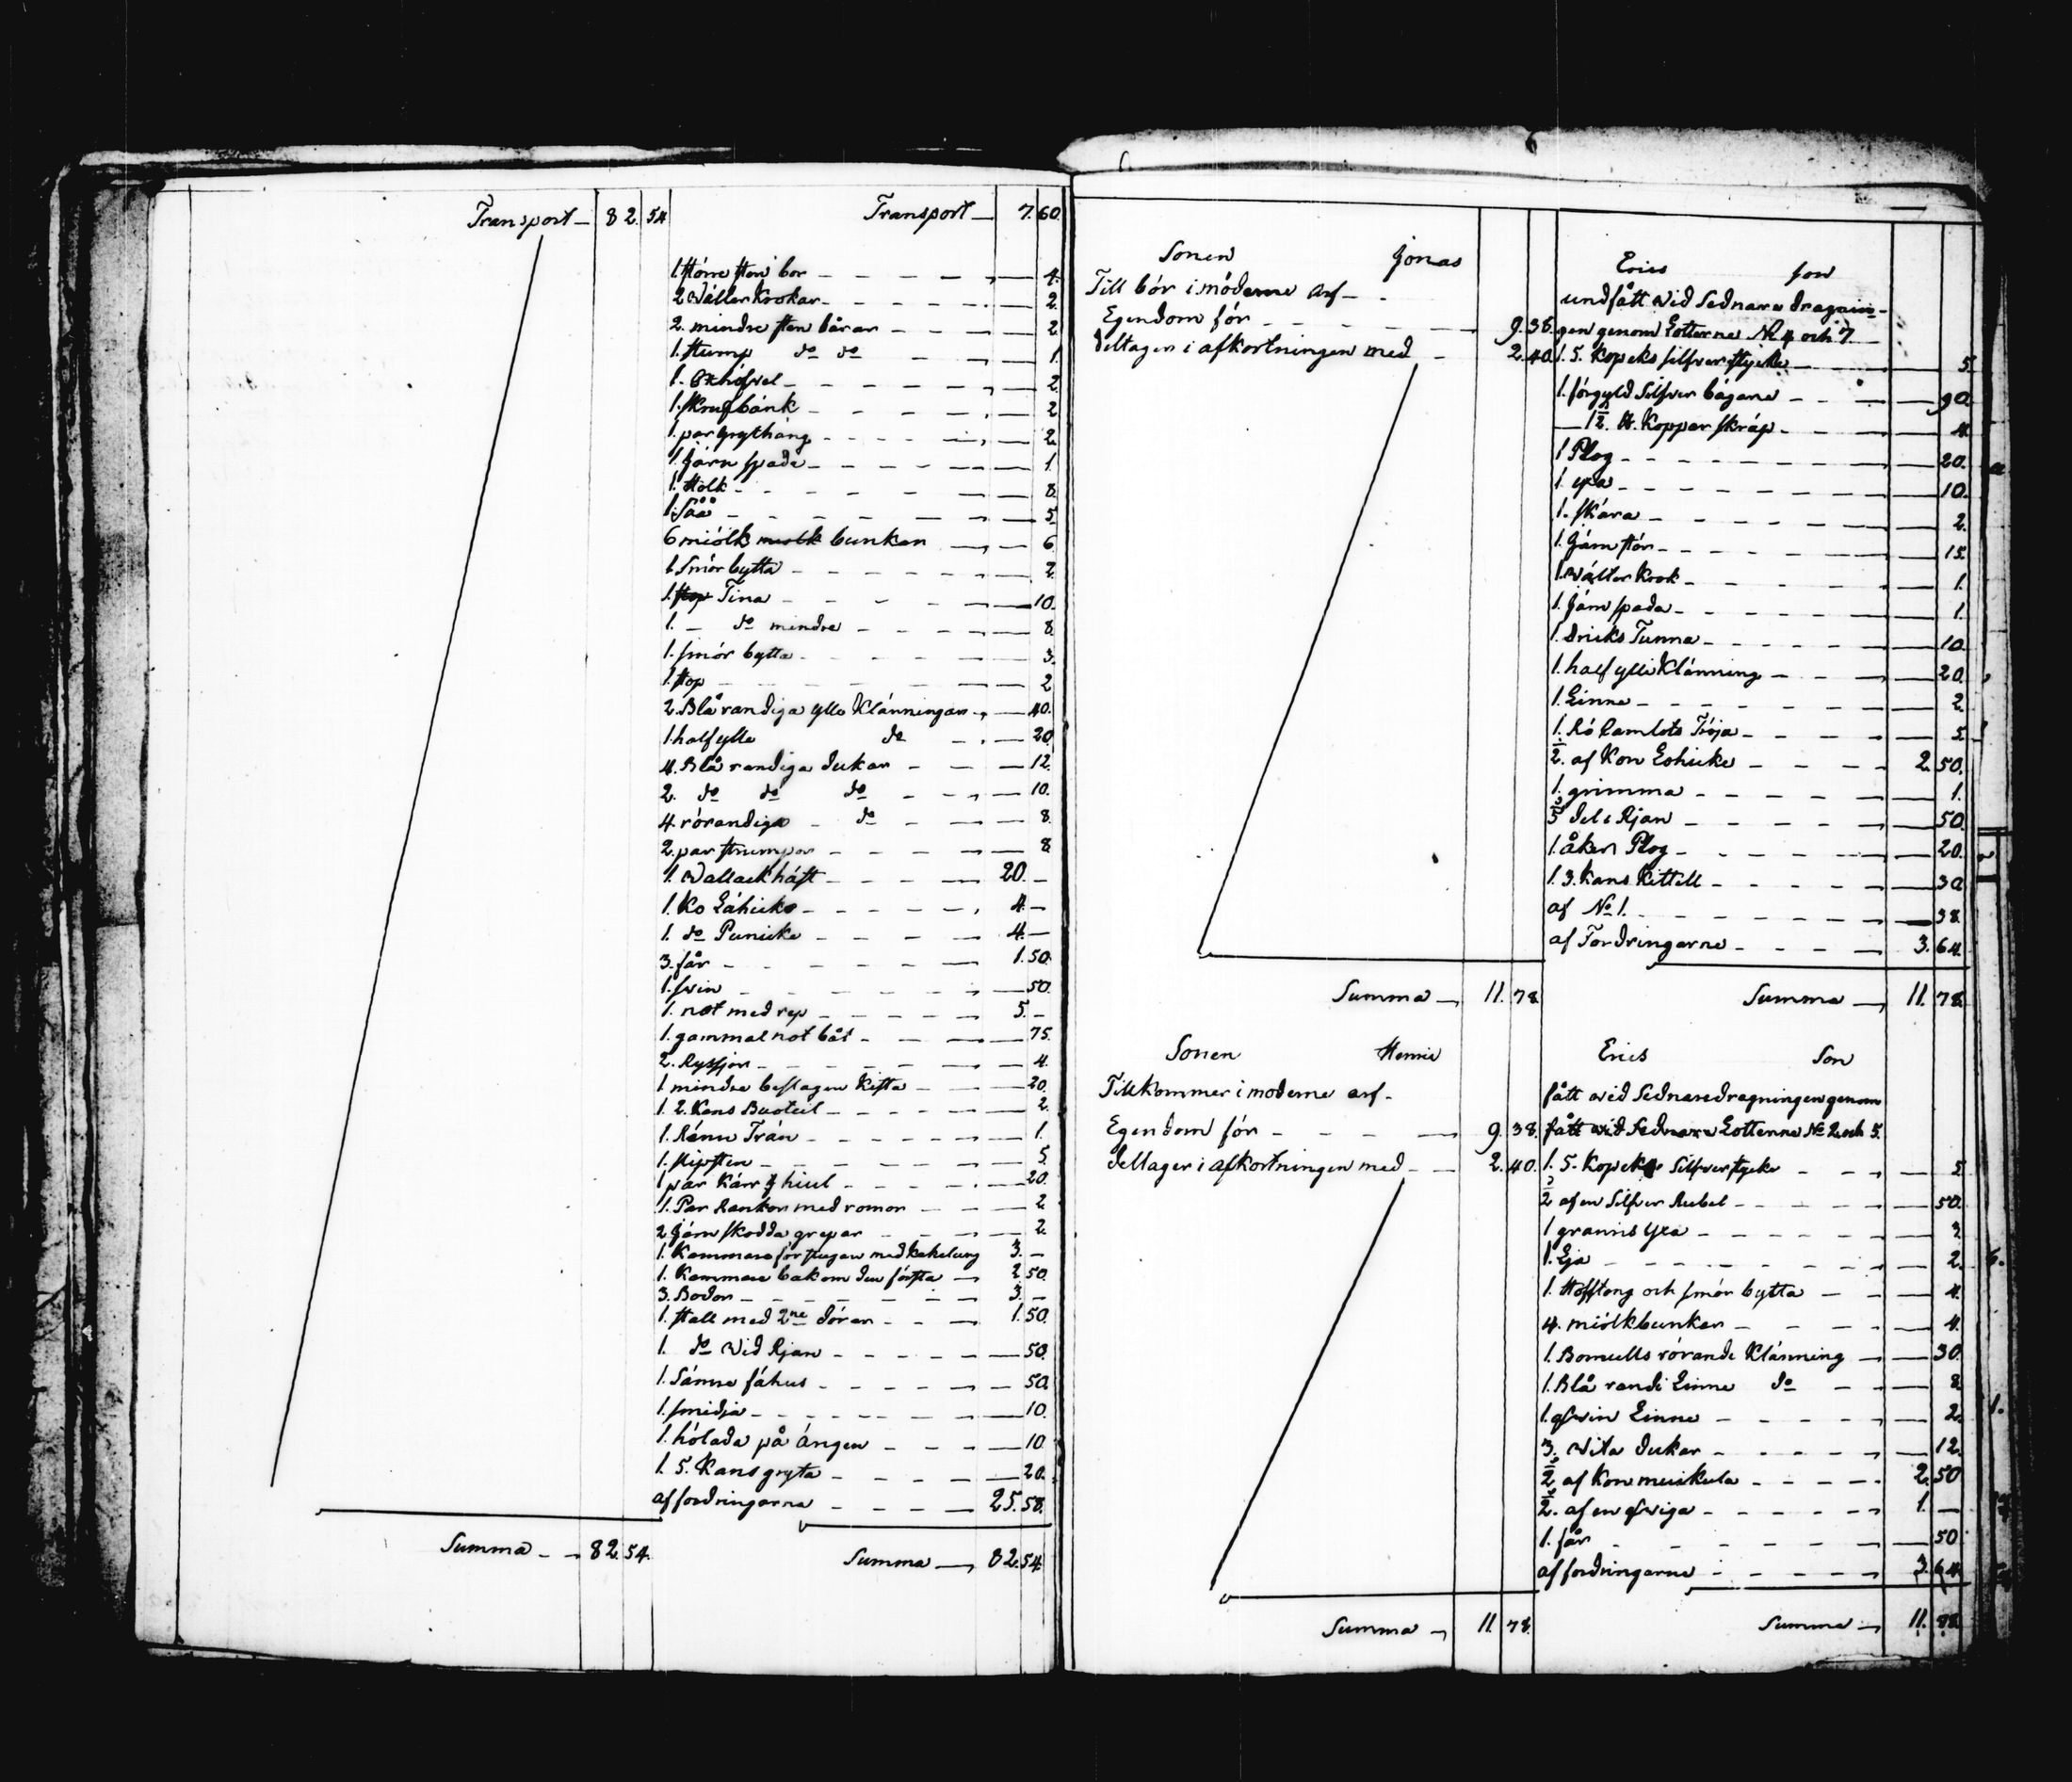 Transport 82. 54
Transport 7. 60.
1 större sten bor 4.
2 Wälter Krokar 2.
2. mindre sten bårar 2
1. stump do do 1.
1. 2
1. skrufbänk 2
1. par grythäng 2.
1. Järn spade 1
1. Stolk 8.
1. Såå 5
6 miölk miölk bunkar 6
1. Smör bytta 2
1. stop Tina 10.
1. — do mindre 8.
1. smör bytta 3.
1. stop 2
2. Blå randiga ylle Klänningar 40.
1. half ylle do 20
4. Blå randiga dukar 12.
2. do do do 10.
4. rörandiga do 8.
2. par strumpor 8
1. Wallack häst 20. —
1. Ko Lähicko 4 —
1. do Punicke 4. —
3. får 1. 50.
1. swin 50.
1. not med rep 5. —
1. gammal not båt 75.
2. Ryssjor 4.
1 mindre beslagen Kista 20.
1. 2. Kans Buteil 2.
1. Ränn Trän 1.
1. slipsten 5
1 par Kärr hiul 20.
1. Par Rankor med romor 2
2 Järn skodda grepar 2.
1. Kammare för stugan med kakelung 3. —
1. Kammare bakom den första 2 50.
3. Bodor 3. —
1. stall med 2ne dörar 1. 50.
1. do wid Rjan 50.
1. Sämre fähus 50.
1. smidja 10.
1. hölada på ängen 10
1. 5. Kans gryta 20.
af fordringarna 25. 58.
Summa 82. 54.
Summa 82. 54.
Sonen Jonas
Till bör i möderne Arf
Egendom för 9. 38.
deltager i afkortningen med 2. 40.
Summa 11. 78
Erics son
undfått wid Sednare dragnin-
gen genom Lotterne No 4 och 7
1. 5. Kopeks silfver stycke 5.
1. förgyld Silfver bägare 90.
1/2. ℔. Koppar skråp 4.
1 Plog 20.
1. yxa 10.
1. skära 2.
1. Järn stör 15.
1. Wälter Krok 1.
1. Järn spada 1.
1. dricks Tunna 10.
1. half ylle Klänning 20.
1. Linne 2
1. Rö Camlots Tröja 5.
1/2. af Kon Lohicke 2. 50.
1. grimma 1.
1/5 del i Rjan 50.
1. åker Plog 20.
1. 3. Kans Kittell 30
af No 1. 38.
af Fordringarne 3. 64.
Summa 11. 78.
Sonen Henric
Tillkommer i moderne arf
Egendom för 9. 38.
deltager i afkortningen med 2. 40.
Summa 11. 78.
Erics Son
fått wid Sednare dragningen genom
fått wid Sednare Lotterna No 2 och 5.
1. 5. Kopeks Silfver stycke 5
1/2 af en Silfver Rubel 50.
1 grannis yxa 3
1. Lja 2.
1. Hofftong och smör bytta 4.
4. miölkbunkar 4.
1. Bomulls rörandi Klänning 30
1. Blå randi Linne do 8
1. qwin Linne 2.
3. Wita dukar 12.
1/2 af Kon muikula 2. 50
1/2. af en qwiga 1. —
1. får 50
af fordringarne 3. 64.
Summa 11. 78.